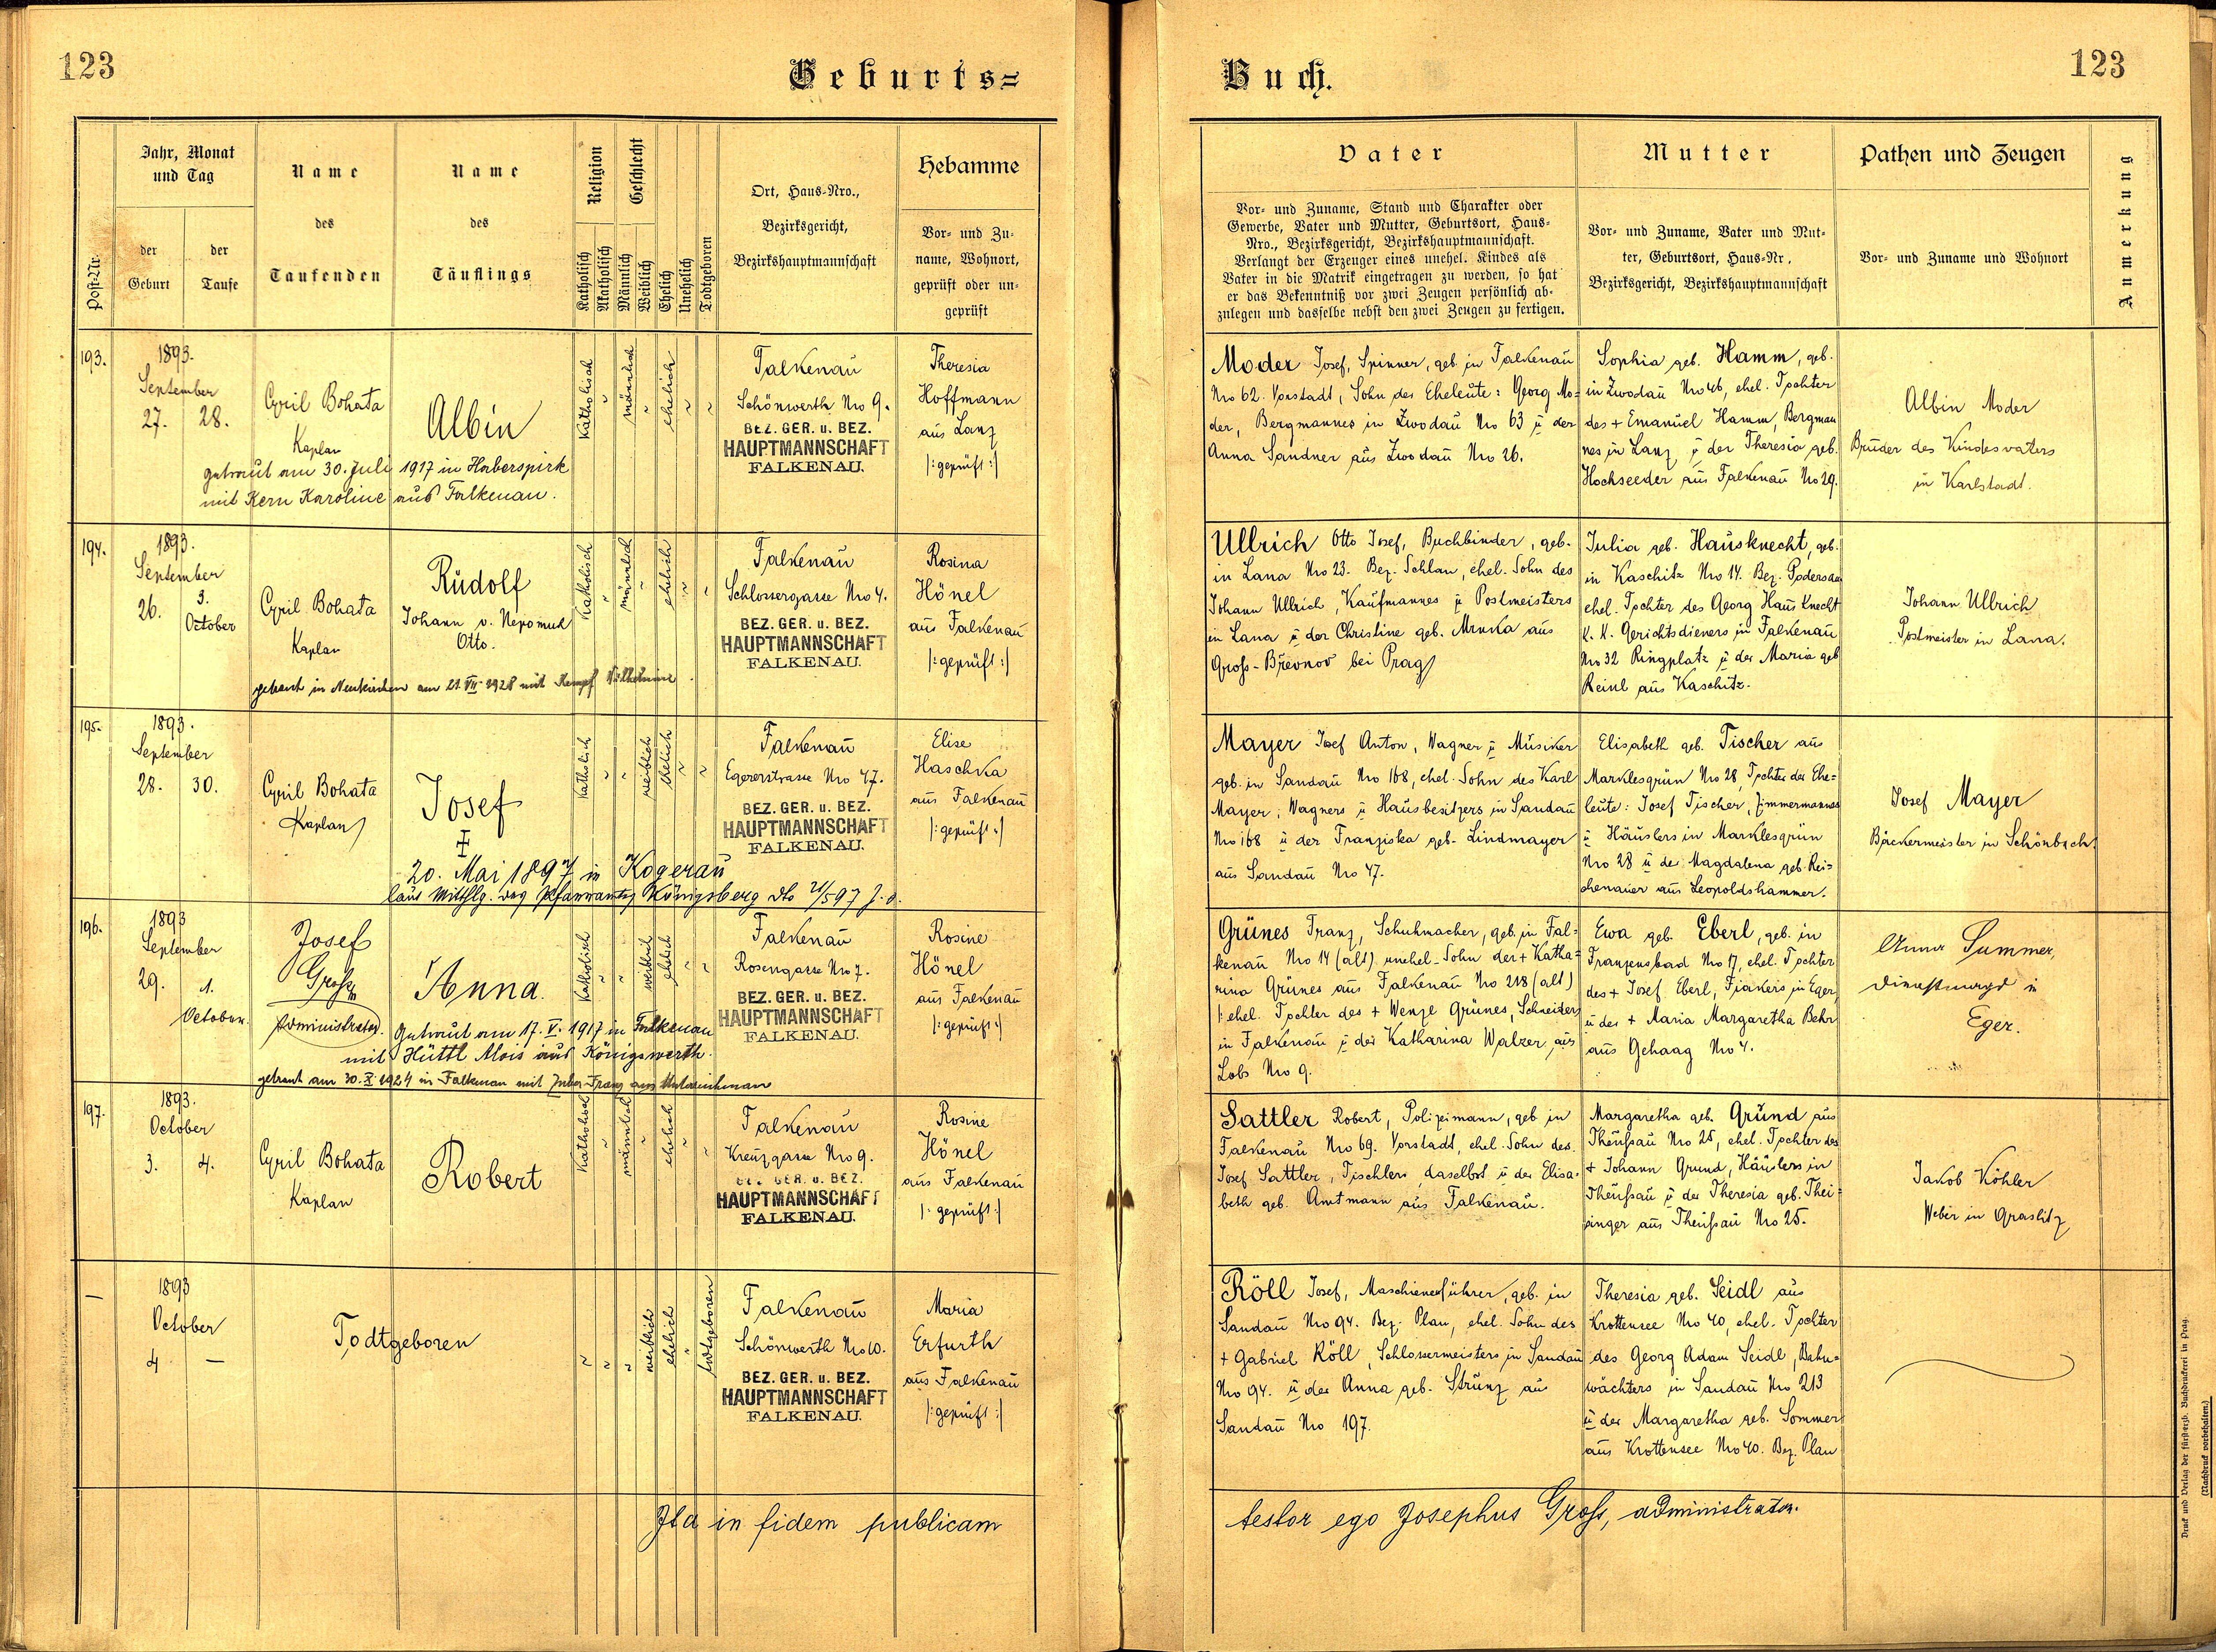 123
Geburts=
Buch.
123
Post-Nr.
Jahr, Monat
und Tag
der
Geburt
der
Taufe
Name
des
Taufenden
Name
des
Täuflings
Religion
Katholisch
Akatholisch
Geschlecht
Männlich
Weiblich
Ehelich
Unehelich
Todtgeboren
Ort, Haus-Nro.,
Bezirksgericht,
Bezirkshauptmannschaft
Hebamme
Vor- und Zu-
name, Wohnort,
geprüft oder un-
geprüft
Vater
Vor- und Zuname, Stand und Charakter oder
Gewerbe, Vater und Mutter, Geburtsort, Haus-
Nro., Bezirksgericht, Bezirkshauptmannschaft.
Verlangt der Erzeuger eines unehel. Kindes als
Vater in die Matrik eingetragen zu werden, so hat
er das Bekenntniß vor zwei Zeugen persönlich ab-
zulegen und dasselbe nebst den zwei Zeugen zu fertigen.
Mutter
Vor- und Zuname, Vater und Mut-
ter, Geburtsort, Haus-Nr.,
Bezirksgericht, Bezirkshauptmannschaft
Pathen und Zeugen
Vor- und Zuname und Wohnort
Anmerkung
193.
1893.
September
27. 28.
Cyril Bohata
Kaplan
Albin
getraut am 30. Juli 1917 in Haberspirk
mit Kern Karoline aus Falkenau.
Katholisch
männlich
ehelich
Falkenau
Schönwerth Nro 9.
BEZ. GER. u. BEZ.
HAUPTMANNSCHAFT
FALKENAU.
Theresia
Hoffmann
aus Lanz
|: geprüft :|
Moder Josef, Spinner, geb. in Falkenau
Nro 62. Vorstadt, Sohn der Eheleute: Georg Mo-
der, Bergmannes in Zwodau Nro 63 u der
Anna Sandner aus Zwodau Nro 26.
Sophia geb. Hamm, geb.
in Zwodau Nro 46, ehel. Tochter
des + Emanuel Hamm, Bergman
nes in Lanz u der Theresia geb.
Hochseeder aus Falkenau No 29.
Albin Moder
Bruder des Kindesvaters
in Karlstadt.
194.
1893.
September
26. 3.
October
Cyril Bohata
Kaplan
Rudolf
Johann v. Nepomuk
Otto.
getraut in Neukirchen am 21. VII. 1928 mit Kempf Wilhelmine.
Katholisch
männlich
ehelich
Falkenau
Schlossergasse Nro 4.
BEZ. GER. u. BEZ.
HAUPTMANNSCHAFT
FALKENAU.
Rosina
Hönel
aus Falkenau
|: geprüft :|
Ullrich Otto Josef, Buchbinder, geb.
in Lana Nro 23. Bez. Schlan, ehel. Sohn des
Johann Ullrich, Kaufmannes u Postmeisters
in Lana u der Christine geb. Mrnka aus
Gross-Břevnov bei Prag
Julia geb. Hausknecht, geb.
in Kaschitz Nro 14. Bez. Podersam
ehel. Tochter des Georg Hausknecht
k. k. Gerichtsdieners in Falkenau
Nro 32 Ringplatz u der Maria geb
Reinl aus Kaschitz.
Johann Ullrich
Postmeister in Lana.
195.
1893.
September
28. 30.
Cyril Bohata
Kaplan
Josef
20. Mai 1897 in Kogerau
laut Mittlg. des Pfarramtes Königsberg dto 21/5 97
Katholisch
weiblich
ehelich
Falkenau
Egererstrasse Nro 47.
BEZ. GER. u. BEZ.
HAUPTMANNSCHAFT
FALKENAU.
Elise
Haschka
aus Falkenau
|: geprüft :|
Mayer Josef Anton, Wagner u Musiker
geb. in Sandau Nro 168, ehel. Sohn des Karl
Mayer, Wagners u Hausbesitzers in Sandau
Nro 168 u der Franziska geb. Lindmayer
aus Sandau Nro 47.
Elisabeth geb. Tischer aus
Marklesgrün Nro 28, Tochter der Ehe=
leute: Josef Tischer, Zimmermannes
u Häuslers in Marklesgrün
Nro 28 u der Magdalena geb. Rei=
chenauer aus Leopoldshammer.
Josef Mayer
Bäckermeister in Schönbach.
196.
1893
September
29. 1.
October.
Josef
Gross
Administrator.
Anna.
Getraut am 17. V. 1917 in Falkenau
mit Hüttl Alois aus Königswerth.
getraut am 30. X. 1924 in Falkenau mit Franz aus
Katholisch
weiblich
ehelich
Falkenau
Rosengasse Nro 7.
BEZ. GER. u. BEZ.
HAUPTMANNSCHAFT
FALKENAU.
Rosine
Hönel
aus Falkenau
|: geprüft :|
Grünes Franz, Schuhmacher, geb. in Fal=
kenau Nro 14 (alt) unehel. Sohn der + Katha=
rina Grünes aus Falkenau No 218 (alt)
|: ehel. Tochter des + Wenzl Grünes, Schneiders
in Falkenau u der Katharina Walzer aus
Lobs Nro 9.
Ewa geb. Eberl, geb. in
Franzensbad No 17, ehel. Tochter
des + Josef Eberl, Fiakers in Eger,
u der + Maria Margaretha Behr
aus Gehaag No 4.
Anna Summer,
Dienstmagd in
Eger.
197.
1893.
October
3. 4.
Cyril Bohata
Kaplan
Robert
Katholisch
männlich
ehelich
Falkenau
Kreuzgasse Nro 9.
BEZ. GER. u. BEZ.
HAUPTMANNSCHAFT
FALKENAU.
Rosine
Hönel
aus Falkenau
|: geprüft :|
Sattler Robert, Polizeimann, geb. in
Falkenau Nro 69. Vorstadt, ehel. Sohn des
Josef Sattler, Tischlers daselbst u der Elisa-
beth geb. Amtmann aus Falkenau.
Margaretha geb. Grund aus
Theußau Nro 25, ehel. Tochter des
+ Johann Grund, Häuslers in
Theußau u der Theresia geb. Thei=
singer aus Theußau Nro 25.
Jakob Köhler
Weber in Graslitz
—
1893
October
4 —
Todtgeboren
weiblich
ehelich
todtgeboren
Falkenau
Schönwerth Nro 10.
BEZ. GER. u. BEZ.
HAUPTMANNSCHAFT
FALKENAU.
Maria
Erfurth
aus Falkenau
|: geprüft :|
Röll Josef, Maschienenführer, geb. in
Sandau Nro 94. Bez. Plan, ehel. Sohn des
+ Gabriel Röll, Schlossermeisters in Sandau
No 94. u der Anna geb. Strunz aus
Sandau Nro 197.
Theresia geb. Seidl aus
Krottensee Nro 40, ehel. Tochter
des Georg Adam Seidl, Bahn=
wächters in Sandau Nro 213
u der Margaretha geb. Sommer
aus Krottensee Nro 40. Bez. Plan
Ita in fidem publicam
testor ego Josephus Gross, administrator.
Druck und Verlag der fürsterzb. Buchdruckerei in Prag.
(Nachdruck vorbehalten.)